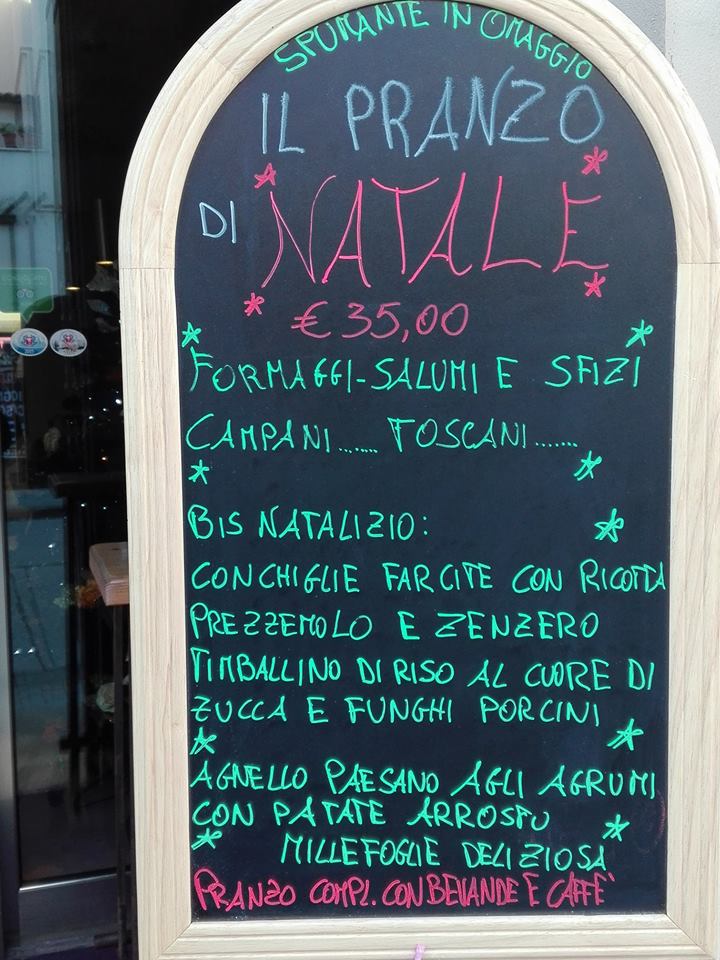 SPUMANTE IN OMAGGIO
IL PRANZO
DI NATALE
€ 35,00
FORMAGGI-SALUMI E SFIZI
CAMPANI....... TOSCANI.......
BIS NATALIZIO:
CONCHIGLIE FARCITE CON RICOTTA
PREZZEMOLO E ZENZERO
TIMBALLINO DI RISO AL CUORE DI
ZUCCA E FUNGHI PORCINI
AGNELLO PAESANO AGLI AGRUMI
CON PATATE ARROSTO
MILLEFOGLIE DELIZIOSA
PRANZO COMPL. CON BEVANDE E CAFFE'